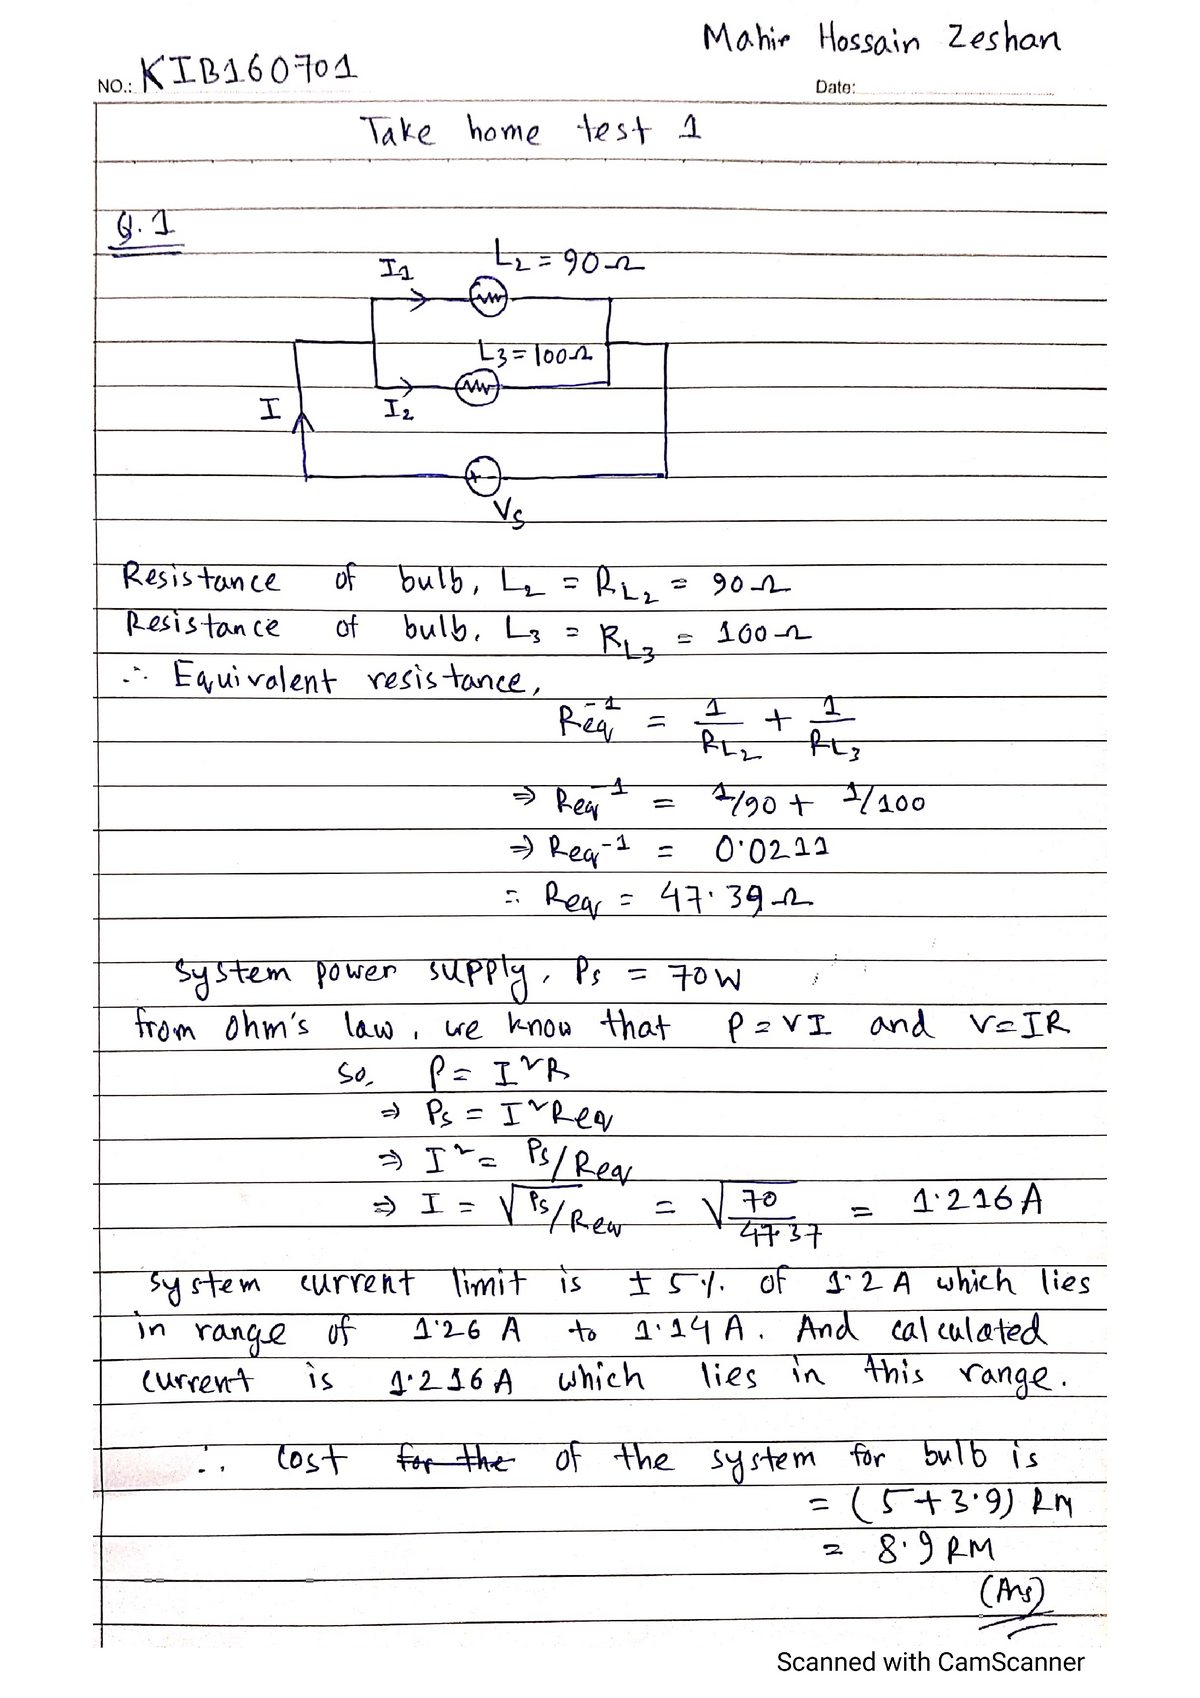 Mahir Hossain Zeshan
NO.: KIB160701
Date:
Take home test 1
Q.1
I1
L2 = 90Ω
L3 = 100Ω
I
I2
+ -
Vs
Resistance of bulb, L2 = RL2 = 90Ω
Resistance of bulb, L3 = RL3 = 100Ω
∴ Equivalent resistance,
Req⁻¹ = 1/RL2 + 1/RL3
⇒ Req⁻¹ = 1/90 + 1/100
⇒ Req⁻¹ = 0.0211
∴ Req = 47.39Ω
System power supply, Ps = 70W
from ohm's law, we know that P=VI and V=IR
So, P = I²R
⇒ Ps = I²Req
⇒ I² = Ps/Req
⇒ I = √Ps/Req = √70/47.37 = 1.216A
system current limit is ±5% of 1.2 A which lies
in range of 1.26 A to 1.14 A. And calculated
current is 1.216 A which lies in this range.
∴ Cost for the of the system for bulb is
= (5+3.9) RM
= 8.9 RM
(Ans)
Scanned with CamScanner